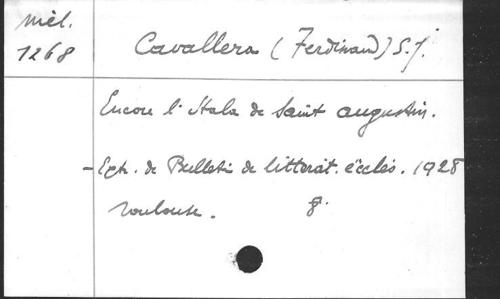 mél.
1268
Cavallera (Ferdinand) S.J.
Encore l'Itala de Saint Augustin.
- Extr. de Bulletin de littérat. ecclés. 1928
Toulouse. 8°